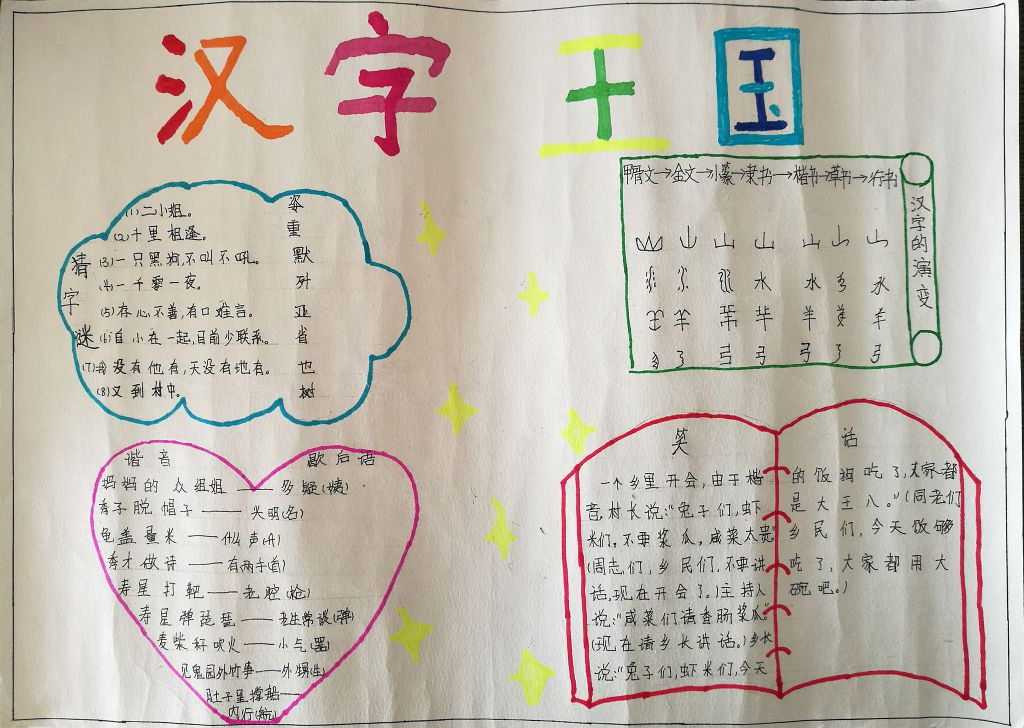 汉字王国
猜字谜
(1)二小姐。 姿
(2)十里相逢。 重
(3)一只黑狗,不叫不吼。 默
(4)一千零一夜。 歼
(5)存心不善,有口难言。 亚
(6)自小在一起,目前少联系。 省
(7)我没有他有,天没有地有。 也
(8)又到村中。 树
甲骨文→金文→小篆→隶书→楷书→草书→行书
汉字的演变
山 山 山 山 山
水 水 水
羊 羊
弓 弓 弓 弓
谐音 歇后语
妈妈的众姐姐——多疑(姨)
秃子脱帽子——头明(名)
龟盖量米——
秀才做诗——有两手(首)
寿星打靶——老腔(枪)
寿星弹琵琶——老生常谈(弹)
麦柴秆吹火——小气(器)
见鬼园外竹事——外甥(生)
肚子里撑船——
内行(航)
笑话
一个乡里开会,由于楷
音,村长说:“兔子们,虾
米们,不要浆瓜,咸菜太贵”
(同志们,乡民们,不要讲
话,现在开会了。)主持人
说:“咸菜们请香肠浆瓜”
(现在请乡长讲话。)乡长
说:“兔子们,虾米们,今天
的饭狗吃了,大家都
是大王八。”(同志们
乡民们,今天饭够
吃了,大家都用大
碗吧。)